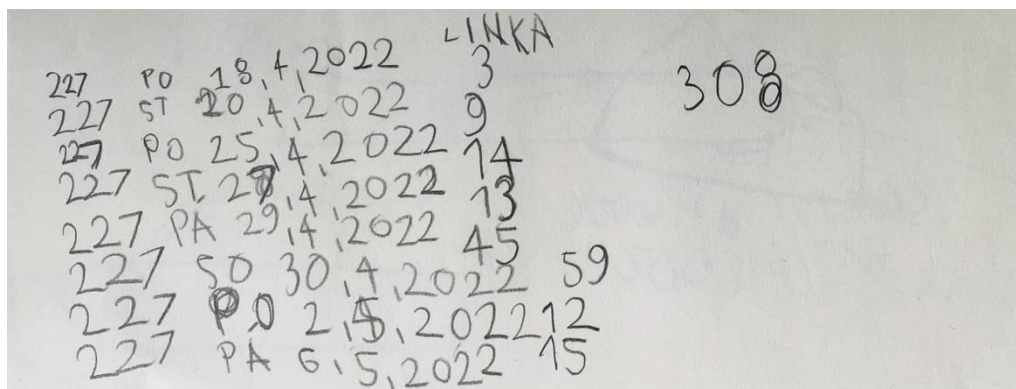 LINKA
227 PO 18,4,2022 3
308
227 ST 20,4,2022 9
227 PO 25,4,2022 14
227 ST 27,4,2022 13
227 PA 29,4,2022 45
227 SO 30,4,2022 59
227 PO 2,5,2022 12
227 PA 6,5,2022 15